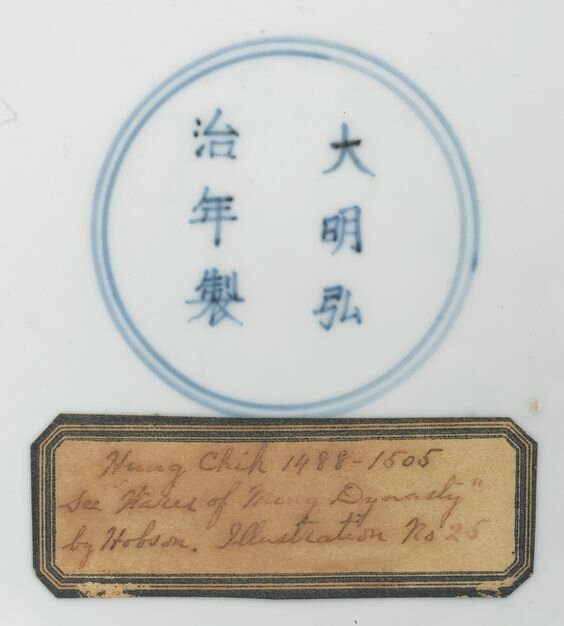 大明弘
治年製
Hung Chih 1488-1505
see "Wares of Ming Dynasty"
by Hobson. Illustration No 25